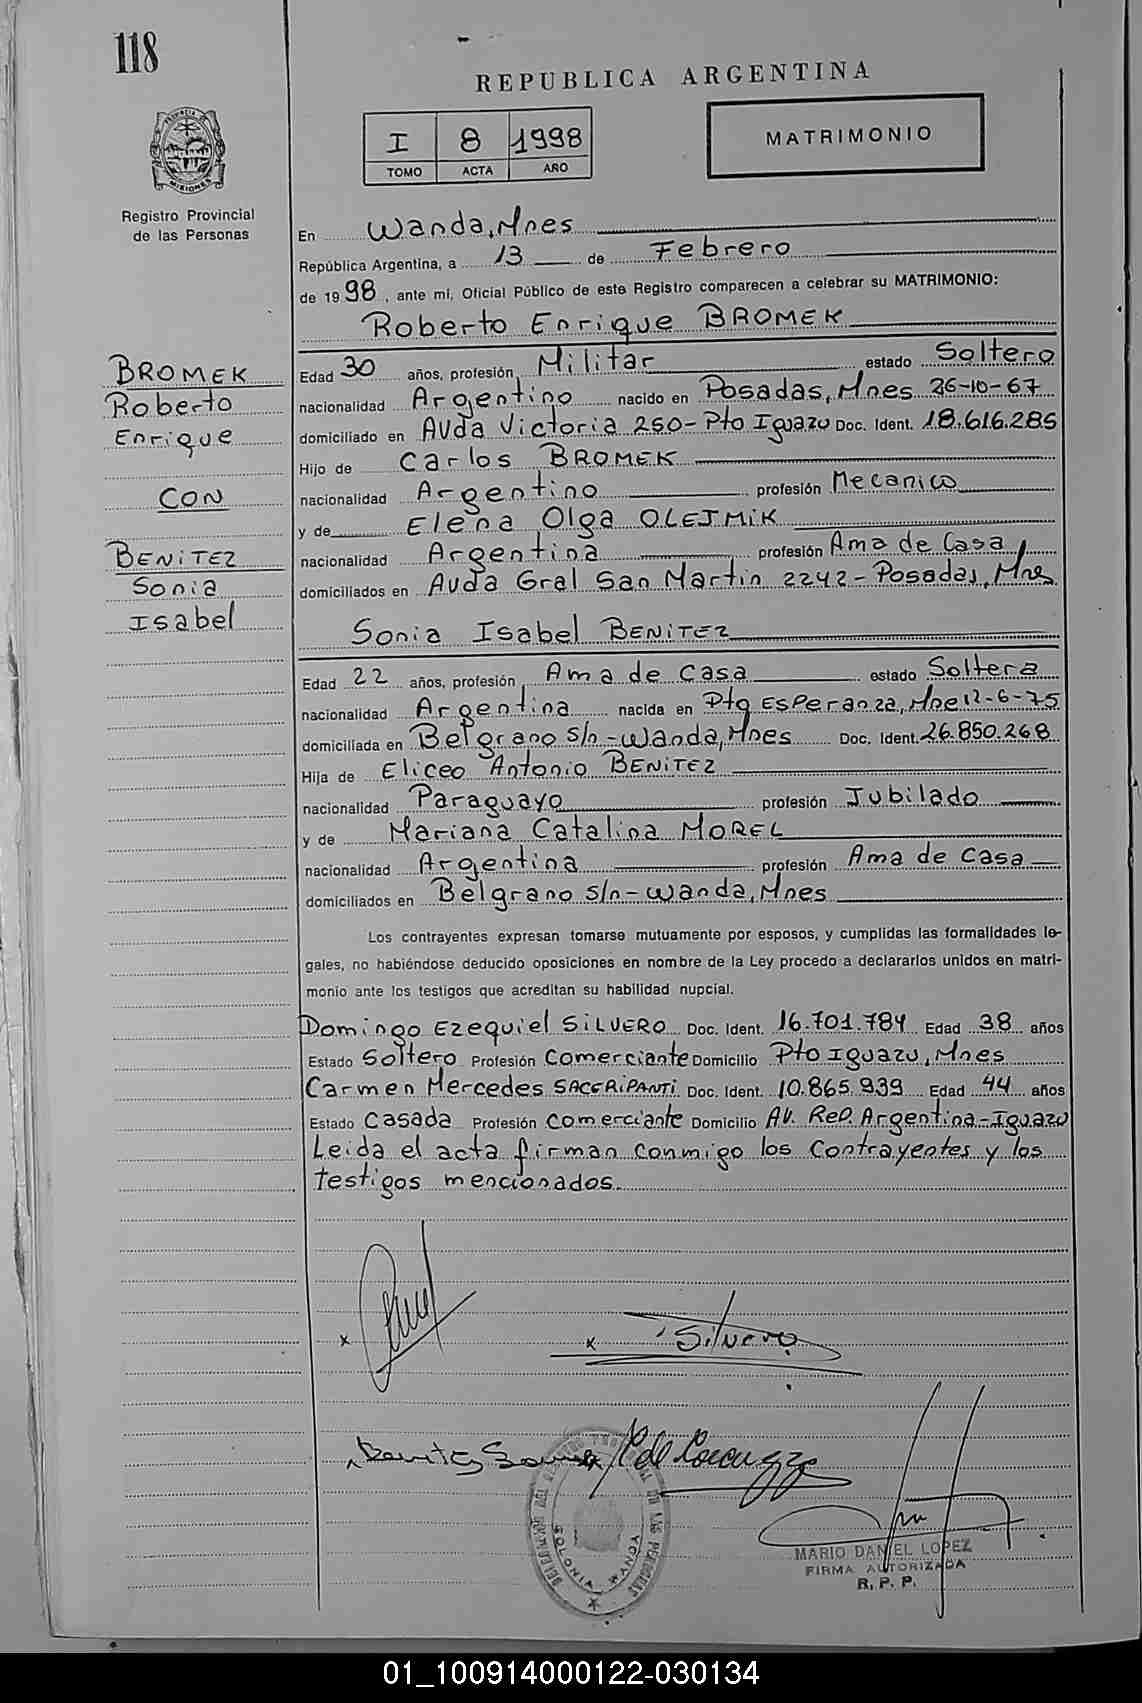 118
REPUBLICA ARGENTINA
I 8 1998
TOMO ACTA AÑO
MATRIMONIO
PROVINCIA DE MISIONES
Registro Provincial
de las Personas
En Wanda, Mnes
República Argentina, a 13 de Febrero
de 1998, ante mí, Oficial Público de este Registro comparecen a celebrar su MATRIMONIO:
Roberto Enrique BROMEK
BROMEK
Roberto
Enrique
CON
BENITEZ
Sonia
Isabel
Edad 30 años, profesión Militar estado Soltero
nacionalidad Argentino nacido en Posadas, Mnes 26-10-67
domiciliado en Avda Victoria 250-Pto Iguazu Doc. Ident. 18.616.285
Hijo de Carlos BROMEK
nacionalidad Argentino profesión Mecanico
y de Elena Olga OLEJMIK
nacionalidad Argentina profesión Ama de Casa
domiciliados en Avda Gral San Martin 2242-Posadas, Mnes
Sonia Isabel BENITEZ
Edad 22 años, profesión Ama de Casa estado Soltera
nacionalidad Argentina nacida en Pto Esperanza, Mne 12-6-75
domiciliada en Belgrano s/n-Wanda, Mnes Doc. Ident. 26.850.268
Hija de Eliceo Antonio BENITEZ
nacionalidad Paraguayo profesión Jubilado
y de Mariana Catalina MOREL
nacionalidad Argentina profesión Ama de Casa
domiciliados en Belgrano s/n-Wanda, Mnes
Los contrayentes expresan tomarse mutuamente por esposos, y cumplidas las formalidades le-
gales, no habiéndose deducido oposiciones en nombre de la Ley procedo a declararlos unidos en matri-
monio ante los testigos que acreditan su habilidad nupcial.
Domingo Ezequiel SILVERO Doc. Ident. 16.701.784 Edad 38 años
Estado Soltero Profesión Comerciante Domicilio Pto Iguazu, Mnes
Carmen Mercedes SACCRIPANTI Doc. Ident. 10.865.939 Edad 44 años
Estado Casada Profesión Comerciante Domicilio Av. Rep. Argentina-Iguazu
Leida el acta firman conmigo los Contrayentes y los
testigos mencionados.
x
x Silvero
Benitez Sonia
COLONIA WANDA
MARIO DANIEL LOPEZ
FIRMA AUTORIZADA
R. P. P.
01_100914000122-030134